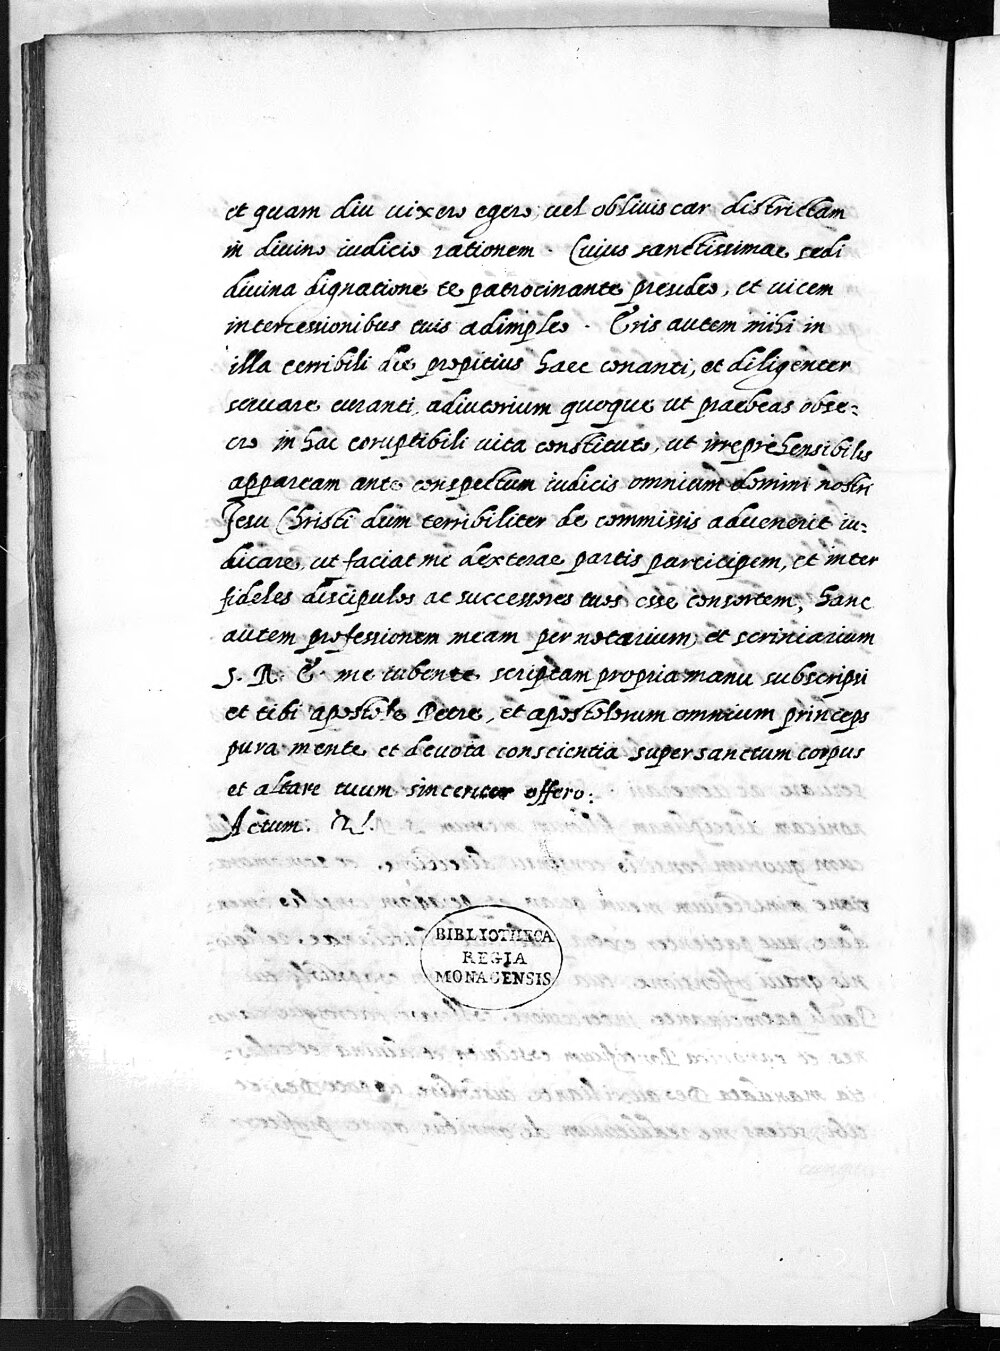 et quam diu vixero egero vel obliviscar districtam
in divino iudicio rationem. Cuius sanctissimae sedi
divina dignatione te patrocinante presideo, et vicem
intercessionibus tuis adimpleo. Eris autem mihi in
illa terribili die propitius haec conanti, et diligenter
servare curanti, adiutorium quoque ut praebeas obse=
cro in hac coruptibili vita constituto, ut irreprehensibilis
appaream ante conspectum iudicis omnium domini nostri
Jesu Christi dum terribiliter de commissis advenerit iu=
dicare, ut faciat me dexterae partis participem, et inter
fideles discipulos ac successores tuos esse consortem, hanc
autem professionem meam per notarium, et scriniarium
S. R. E. me iubente scriptam propria manu subscripsi
et tibi apostole Petre, et apostolorum omnium princeps
pura mente et devota conscientia super sanctum corpus
et altare tuum sinceriter offero:
Actum.
BIBLIOTHECA
REGIA
MONACENSIS